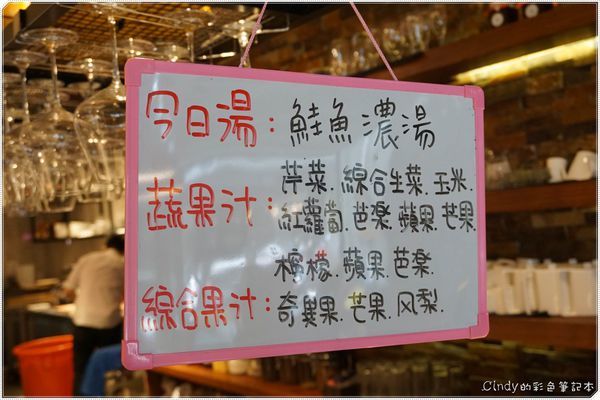 今日湯：鮭魚濃湯
芹菜.綜合生菜.玉米.
蔬果汁：紅蘿蔔.芭樂.蘋果.芒果
檸檬.蘋果.芭樂.
綜合果汁：奇異果.芒果.风梨.
Cindy的彩色筆記本